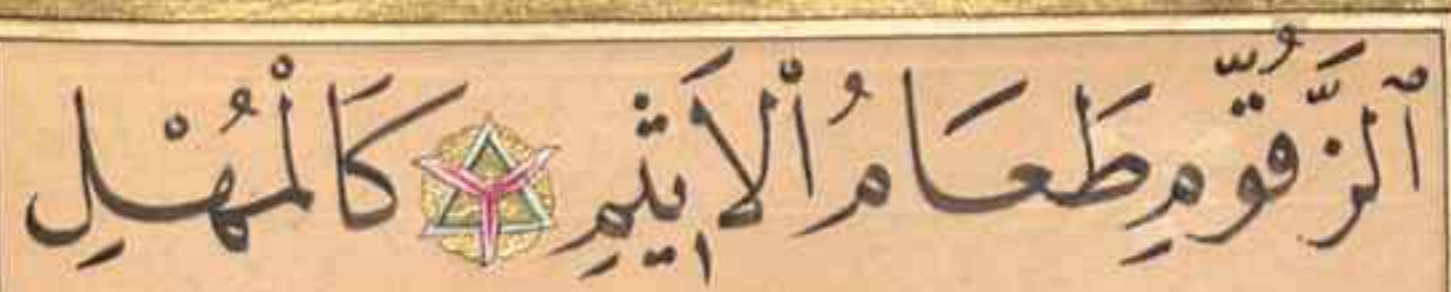 ٱلزَّقُّومِ طَعَامُ ٱلْأَثِيمِ كَالْمُهْلِ